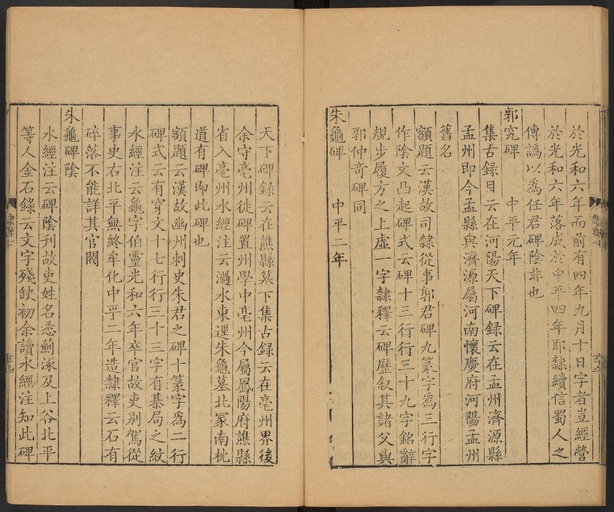 於光和六年而前有四年九月十日字者豈經營
於光和六年落成於中平四年耶隸續信蜀人之
傳譌以為任君碑陰非也
郭究碑　中平元年
集古錄目云在河陽天下碑錄云在孟州濟源縣
孟州即今孟縣與濟源屬河南懷慶府河陽孟州
舊名
額題云漢故司隸從事郭君碑九篆字為三行字
作陰文凸起碑式云碑十三行行三十九字銘辭
規步履方之上虛一字隸釋云碑歷敘其諸父與
郭仲奇碑同
朱龜碑　中平二年
天下碑錄云在譙縣墓下集古錄云在亳州界後
余守亳州徙碑置州學中亳州今屬鳳陽府譙縣
省入亳州水經注云過水東逕朱龜墓北冢南枕
道有碑即此碑也
額題云漢故幽州刺史朱君之碑十篆字為二行
碑式云有穿文十七行行三十三字有棊局之紋
水經注云龜字伯靈光和六年卒官故吏別駕從
事史右北平無終牟化中平二年造隸釋云石有
碎落不能詳其官閥
朱龜碑陰
水經注云碑陰刋故吏姓名悉薊涿及上谷北平
等人金石錄云文字殘缺初余讀水經注知此碑